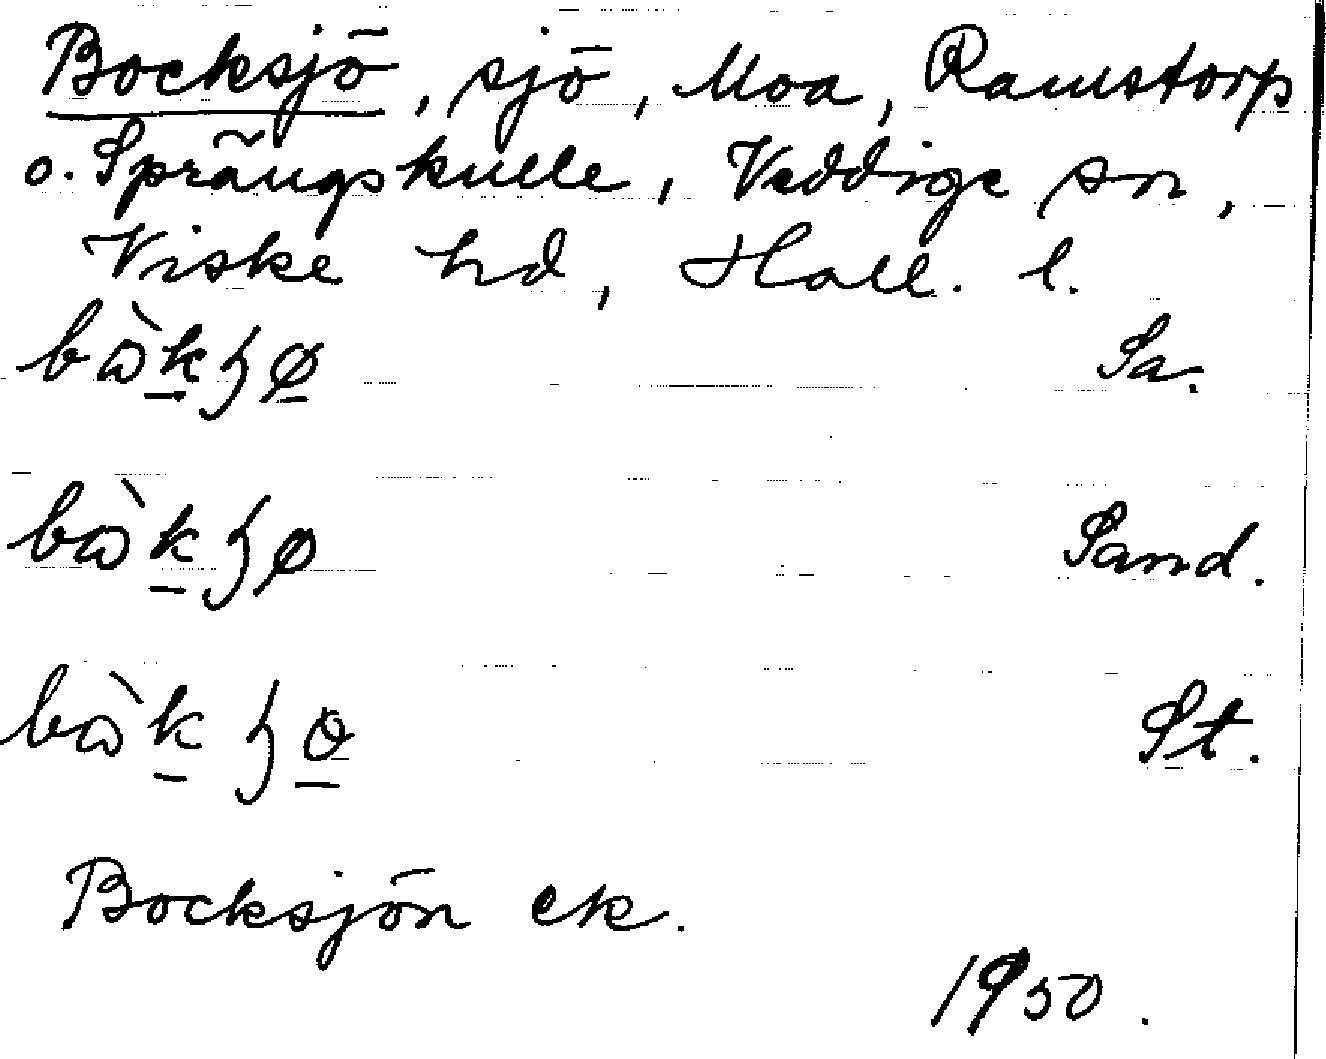 Bocksjö, sjö, Moa, Ramstorp
o. Sprängskulle, Veddige sn,
Viske hd, Hall. l.
Sa.
Sand.
St.
Bocksjön ek.
1950.